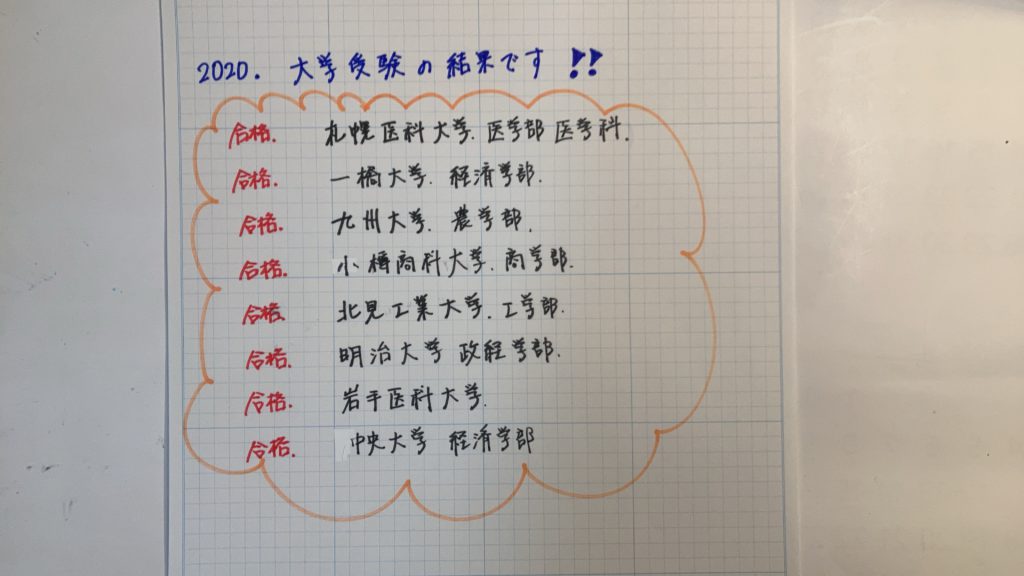 2020. 大学受験の結果です!!
合格. 札幌医科大学. 医学部 医学科.
合格. 一橋大学. 経済学部.
合格. 九州大学. 農学部.
合格. 小樽商科大学. 商学部.
合格. 北見工業大学. 工学部.
合格. 明治大学 政経学部.
合格. 岩手医科大学.
合格. 中央大学 経済学部